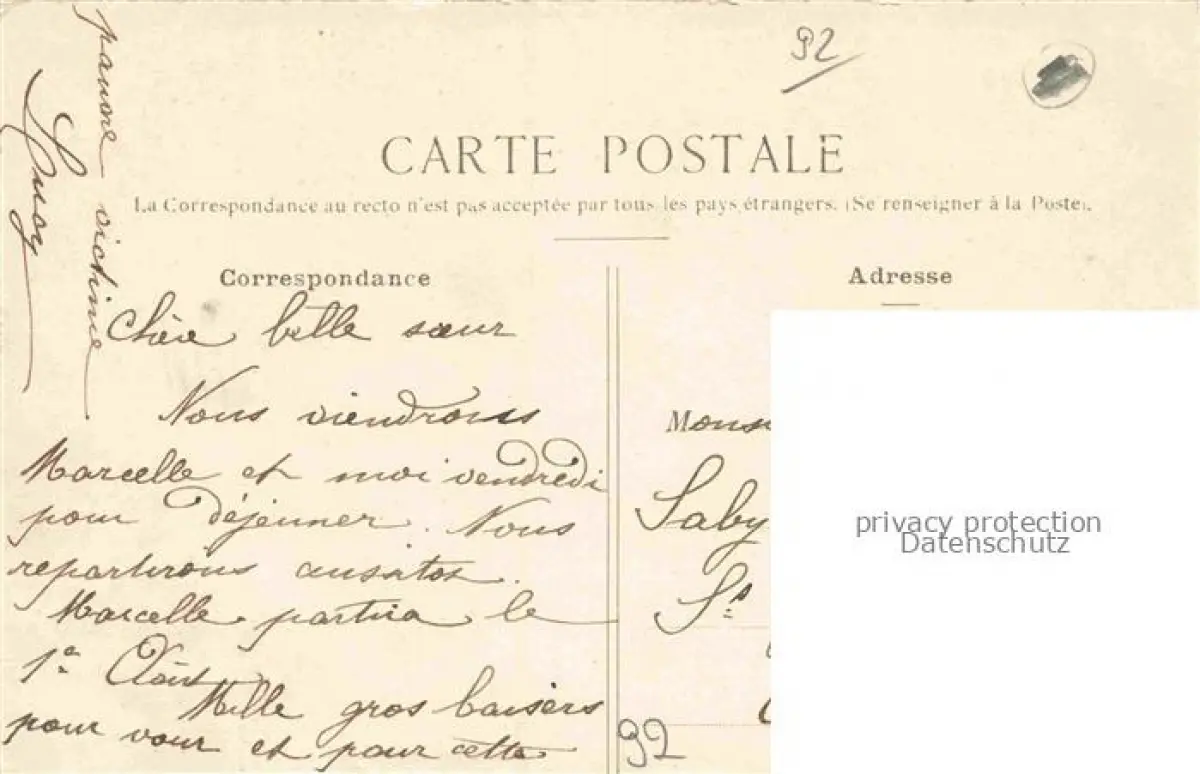 92
CARTE POSTALE
La Correspondance au recto n'est pas acceptée par tous les pays étrangers. (Se renseigner à la Poste).
Correspondance
Chère belle sœur
Nous viendrons
Marcelle et moi vendredi
pour déjeuner. Nous
repartirons ausitot.
Marcelle partira le
1er Août
Mille gros baisers
pour vous et pour cette
pauvre victime
Adresse
Mons
Saby
Ss
92
privacy protection
Datenschutz